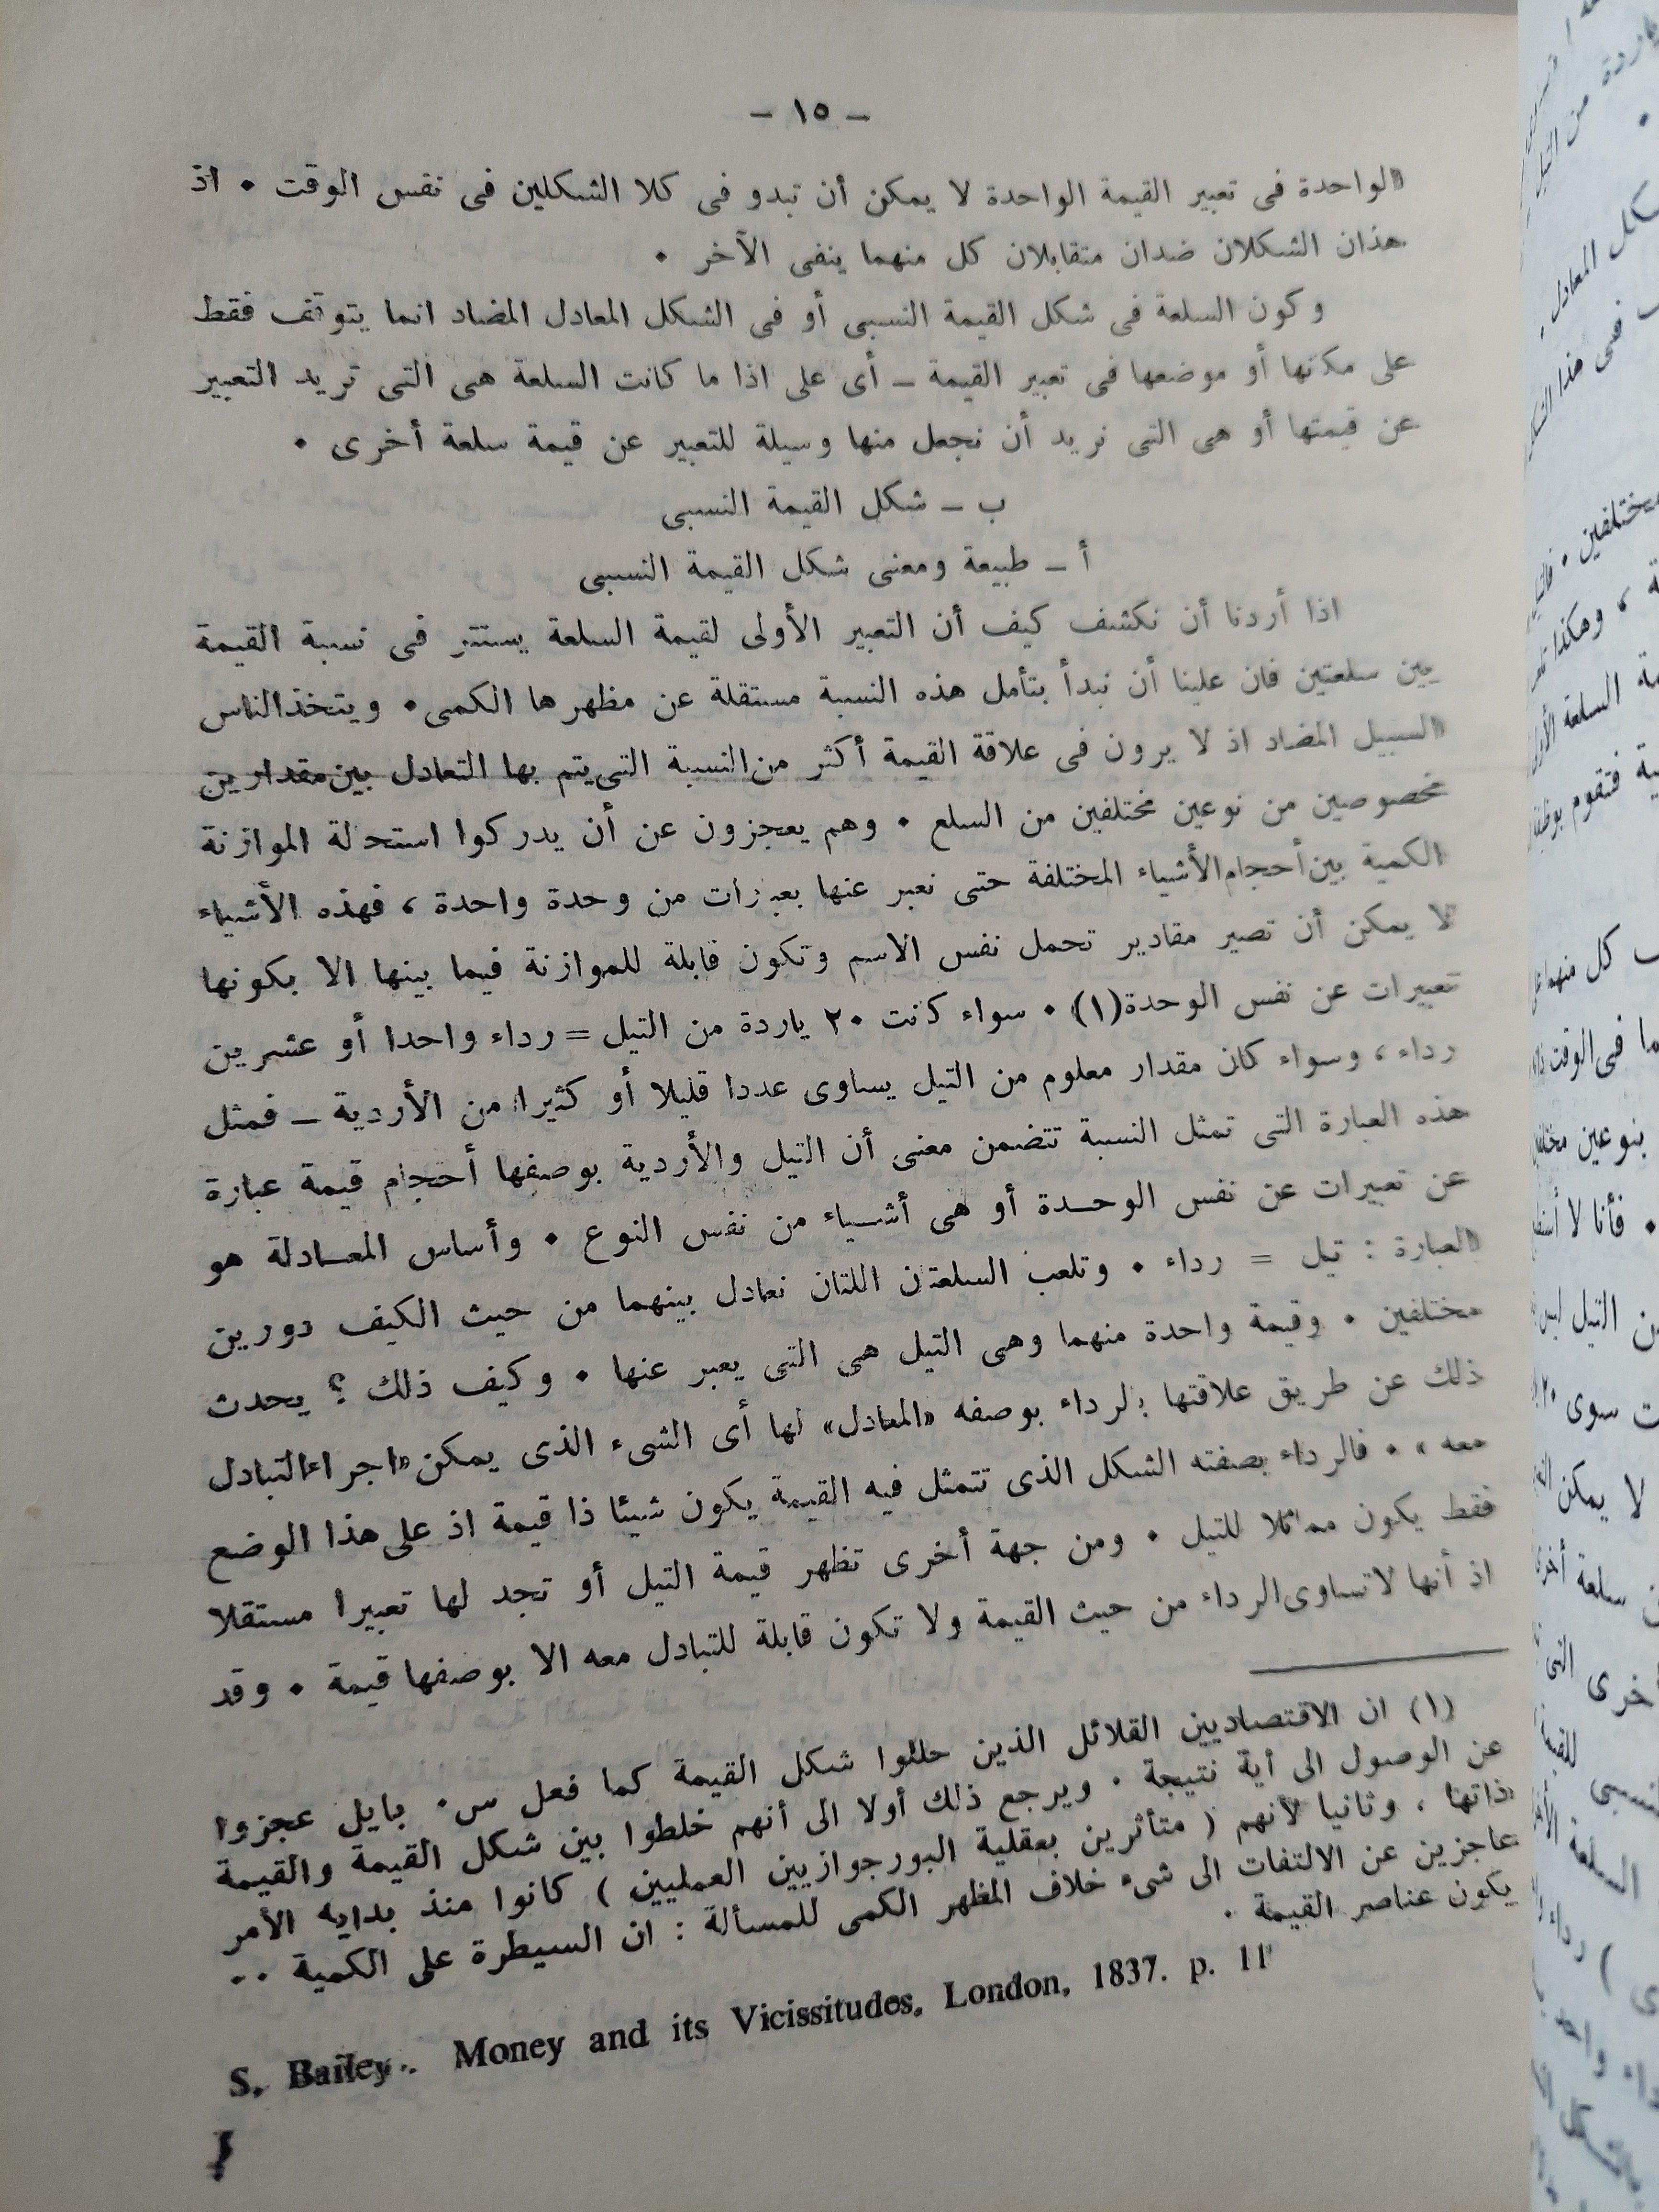 ــ ١٥ ــ
الواحدة فى تعبير القيمة الواحدة لا يمكن أن تبدو فى كلا الشكلين فى نفس الوقت ٠ اذ
هذان الشكلان ضدان متقابلان كل منهما ينفى الآخر ٠
وكون السلعة فى شكل القيمة النسبى أو فى الشكل المعادل المضاد انما يتوقف فقط
على مكانها أو موضعها فى تعبير القيمة ــ أى على اذا ما كانت السلعة هى التى تريد التعبير
عن قيمتها أو هى التى نريد أن نجعل منها وسيلة للتعبير عن قيمة سلعة أخرى ٠
ب ــ شكل القيمة النسبى
أ ــ طبيعة ومعنى شكل القيمة النسبى
اذا أردنا أن نكشف كيف أن التعبير الأولى لقيمة السلعة يستتر فى نسبة القيمة
بين سلعتين فان علينا أن نبدأ بتأمل هذه النسبة مستقلة عن مظهرها الكمى ٠ ويتخذ الناس
السبيل المضاد اذ لا يرون فى علاقة القيمة أكثر من النسبة التى يتم بها التعادل بين مقدارين
مخصوصين من نوعين مختلفين من السلع ٠ وهم يعجزون عن أن يدركوا استحالة الموازنة
الكمية بين أحجام الأشياء المختلفة حتى نعبر عنها بعبارات من وحدة واحدة ، فهذه الأشياء
لا يمكن أن تصير مقادير تحمل نفس الاسم وتكون قابلة للموازنة فيما بينها الا بكونها
تعبيرات عن نفس الوحدة(١) ٠ سواء كانت ٢٠ ياردة من التيل = رداء واحدا أو عشرين
رداء ، وسواء كان مقدار معلوم من التيل يساوى عددا قليلا أو كثيرا من الأردية ــ فمثل
هذه العبارة التى تمثل النسبة تتضمن معنى أن التيل والأردية بوصفها أحجام قيمة عبارة
عن تعبيرات عن نفس الوحدة أو هى أشياء من نفس النوع ٠ وأساس المعادلة هو
العبارة : تيل = رداء ٠ وتلعب السلعتان اللتان نعادل بينهما من حيث الكيف دورين
مختلفين ٠ وقيمة واحدة منهما وهى التيل هى التى يعبر عنها ٠ وكيف ذلك ؟ يحدث
ذلك عن طريق علاقتها بالرداء بوصفه «المعادل» لها أى الشىء الذى يمكن «اجراء التبادل
معه » ٠ فالرداء بصفته الشكل الذى تتمثل فيه القيمة يكون شيئا ذا قيمة اذ على هذا الوضع
فقط يكون مماثلا للتيل ٠ ومن جهة أخرى تظهر قيمة التيل أو تجد لها تعبيرا مستقلا
اذ أنها لا تساوى الرداء من حيث القيمة ولا تكون قابلة للتبادل معه الا بوصفها قيمة ٠ وقد
(١) ان الاقتصاديين القلائل الذين حللوا شكل القيمة كما فعل س٠ بايل عجزوا
عن الوصول الى أية نتيجة ٠ ويرجع ذلك أولا الى أنهم خلطوا بين شكل القيمة والقيمة
ذاتها ، وثانيا لأنهم ( متأثرين بعقلية البورجوازيين العمليين ) كانوا منذ بداية الأمر
عاجزين عن الالتفات الى شىء خلاف المظهر الكمى للمسألة : ان السيطرة على الكمية ٠٠
يكون عناصر القيمة ٠
S. Bailey.. Money and its Vicissitudes, London, 1837. p. 11